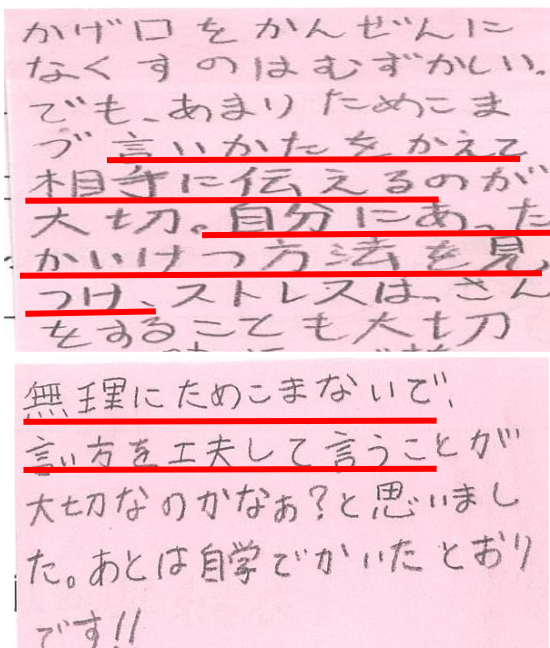 かげ口をかんぜんに
なくすのはむずかしい。
でも、あまりためこま
づ言いかたをかえて
相手に伝えるのが
大切。自分にあった
かいけつ方法を見
つけ、ストレスはっさん
をすることも大切
無理にためこまないで、
言い方を工夫して言うことが
大切なのかなぁ?と思いまし
た。あとは自学でかいたとおり
です!!